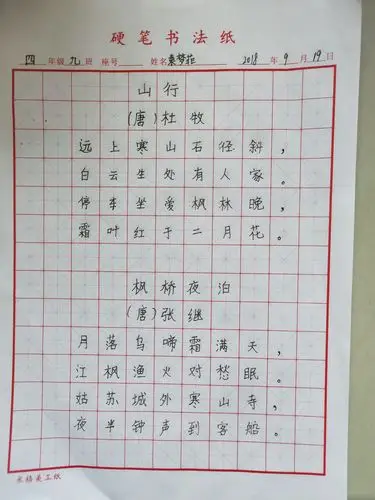 硬笔书法纸
四年级九班 座号 姓名秦梦菲 2018年9月19日
山行
(唐)杜牧
远上寒山石径斜,
白云生处有人家。
停车坐爱枫林晚,
霜叶红于二月花。
枫桥夜泊
(唐)张继
月落乌啼霜满天,
江枫渔火对愁眠。
姑苏城外寒山寺,
夜半钟声到客船。
米格美工纸